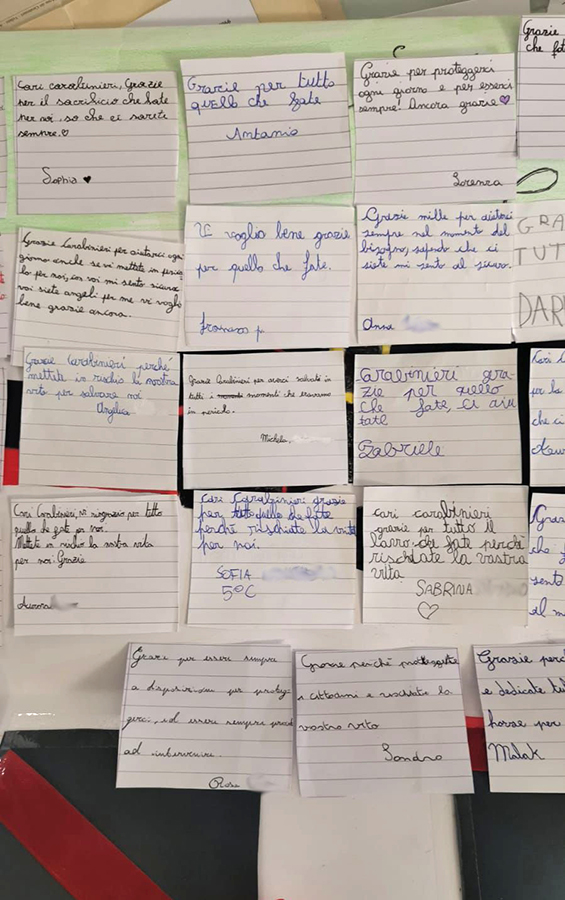 Cari carabinieri, Grazie
per il sacrificio che fate
per noi, so che ci sarete
sempre.♡
Sophia ♥
Grazie per tutto
quello che fate
Antonio
Grazie per proteggerci
ogni giorno e per esserci
sempre! Ancora grazie♥
Lorenza
Grazie
che fat
Grazie Carabinieri per aiutarci ogni
giorno anche se vi mettete in perico
lo per noi, con voi mi sento sicura
voi siete angeli per me vi voglio
bene grazie ancora.
Vi voglio bene grazie
per quello che fate.
Francesco p
Grazie mille per aiutarci
sempre nel momento del
bisogno, sapendo che ci
siete mi sento al sicuro.
Anna
GRA
TUT
DAR
Grazie Carabinieri perché
mettete in rischio la vostra
vita per salvare noi
Angelica
Grazie Carabinieri per averci salvato in
tutti i momenti che eravamo
in pericolo.
Michela
Carabinieri gra-
zie per quello
che fate, ci aiu
tate
Gabriele
Cari C
per la
che ci
Cari Carabinieri, vi ringrazio per tutto
quello che fate per noi.
Mettete in rischio la vostra vita
per noi. Grazie
Aurora
Cari Carabinieri grazie
per tutto quello che fate
perché rischiate la vita
per noi.
SOFIA
5°C
cari carabinieri
grazie per tutto il
lavoro che fate perché
rischiate la vostra
vita
SABRINA
♡
Graz
che
sento
al m
Grazie per essere sempre
a disposizione per proteg-
gerci, ed essere sempre pronti
ad intervenire.
Rosa
Grazie perché proteggete
i cittadini e rischiate la
vostra vita
Sandro
Grazie perc
e dedicate tut
forze per
Malak